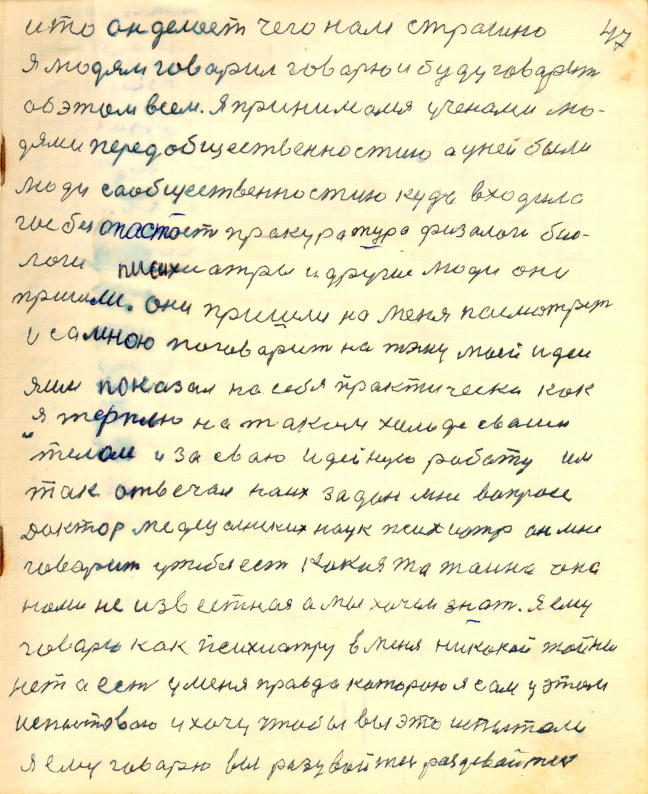 47
ито он делает чего нам страшно
я людям говорил говарю и буду говарит
об этом всем. Я принимался учеными лю-
дями перед общественностию а у ней были
люди с аобщественностию куда входила
гос безопастост пракуратура физалоги био-
логи психиатры и другие люди они
пришли. они пришли на меня пасмотрет
и са мною поговарит на тэму моей идеи
я им показал на себя практически как
я терплю на таком халоде сваим
телом и за сваю идейную работу им
так отвечал на их задан мне вопрос
доктор медецинских наук псих иатр он мне
говарит у тибя ест какая та таина она
нами не известная а мы хочем знат. Я ему
говарю как психиатру в меня никакой тайны
нет а ест у меня правда каторою я сам у этом
испытоваю и хочу чтобы вы это испытали
я ему говарю вы разувайтес раздевайтес